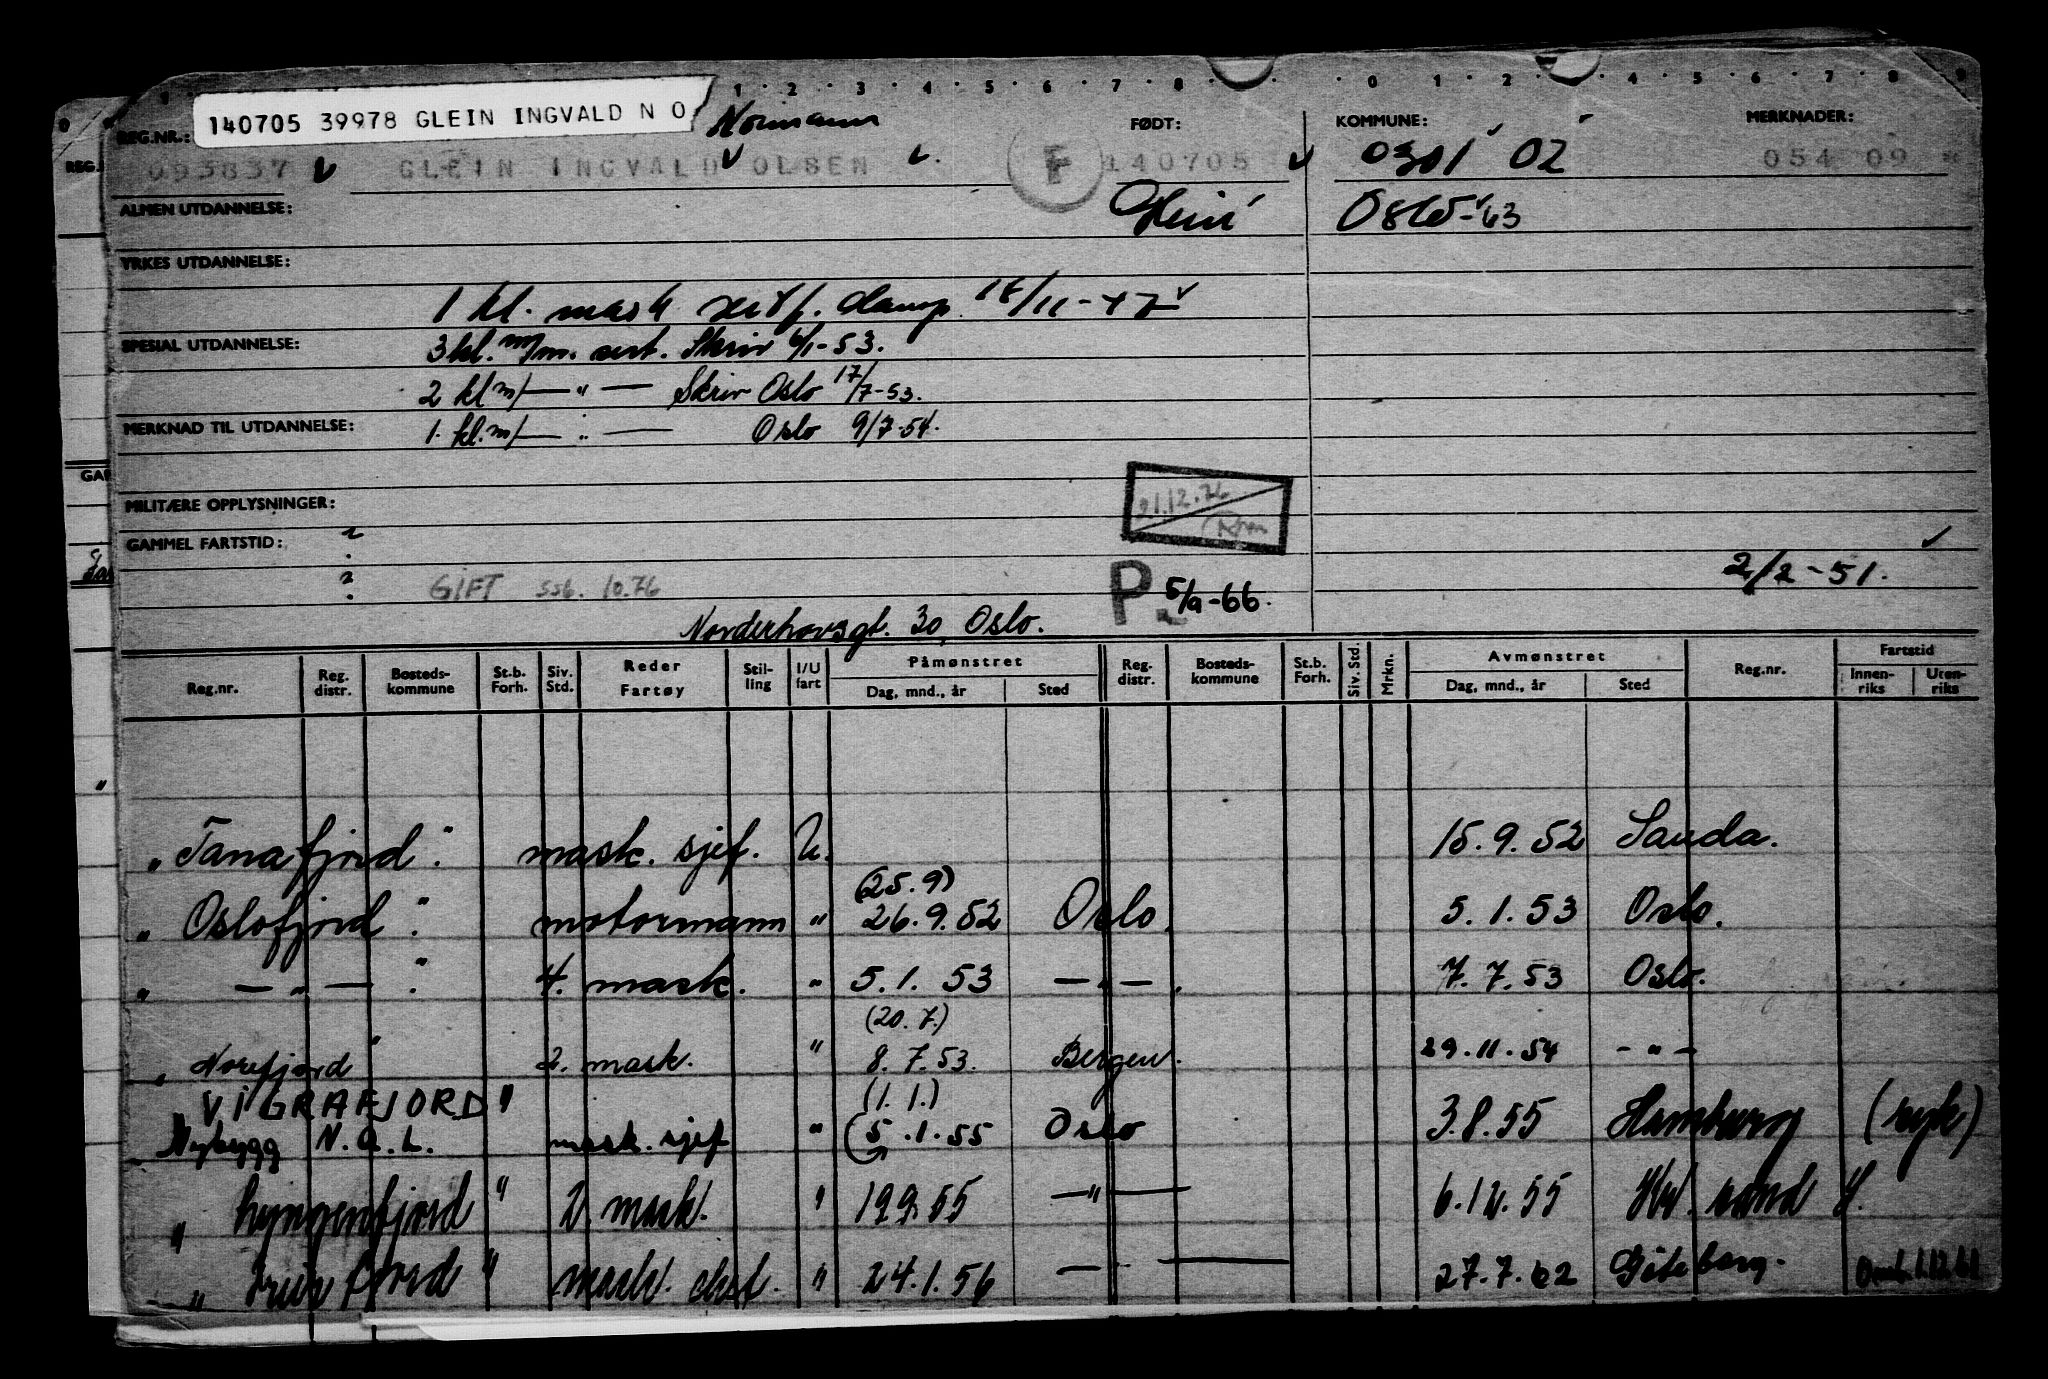 140705 39978 GLEIN INGVALD N O
Normann
REG.NR.:
FØDT:
KOMMUNE:
MERKNADER:
093837 GLEIN INGVALD OLSEN F 140705 0301 02 054 09
ALMEN UTDANNELSE:
Oslo - 63
YRKES UTDANNELSE:
1 kl. mask sert f. damp
SPESIAL UTDANNELSE:
3 kl. m/m. sert. Skriv 6/1-53.
2 kl m/ — " — Skriv Oslo 17/7-53.
MERKNAD TIL UTDANNELSE:
1. kl. m/ — " — Oslo 9/7-54.
MILITÆRE OPPLYSNINGER:
21.12.76
GAMMEL FARTSTID:
2/2-51.
GIFT ssb. 10.76
P. 5/9-66.
Norderhovsgt. 30, Oslo.
Reg.nr. Reg. distr. Bosteds-kommune St.b. Forh. Siv. Std. Reder Fartøy Stil-ling I/U fart Påmønstret Dag, mnd., år Sted Reg. distr. Bosteds-kommune St.b. Forh. Siv. Std. Mrkn. Avmønstret Dag, mnd., år Sted Reg.nr. Fartstid Innen-riks Uten-riks
"Tanafjord". mask. sjef. U. 15.9.52 Sauda.
(25.9)
"Oslofjord". motormann " 26.9.52 Oslo. 5.1.53 Oslo.
" — " — ". 4. mask. " 5.1.53 — " — . 7.7.53 Oslo.
(20.7.)
"Norefjord" 2. mask. " 8.7.53. Bergen. 29.11.54 - " -
"VIGRAFJORD" (1.1.)
Nybygg N.A.L. mask. sjef " 5.1.55 Oslo 3.8.55 Hamburg (syk)
"Lyngenfjord" 2. mask. " 19.9.55 — " — 6.12.55 Kr. sand S.
mask. " 24.1.56 — 27.7.62 Göteborg.